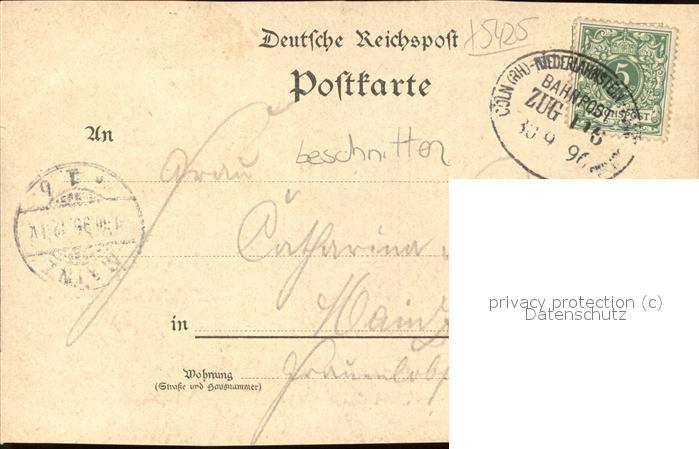 x5425
Deutsche Reichspost
Postkarte
5
REICHSPOST
CÖLN (RH)-NIEDERLAHNSTEIN
BAHNPOST
ZUG
30 9 96
An
beschnitten
Frau
MAINZ
Catharina
in Mainz
Wohnung
(Straße und Hausnummer)
Frauenlob
privacy protection (c)
Datenschutz